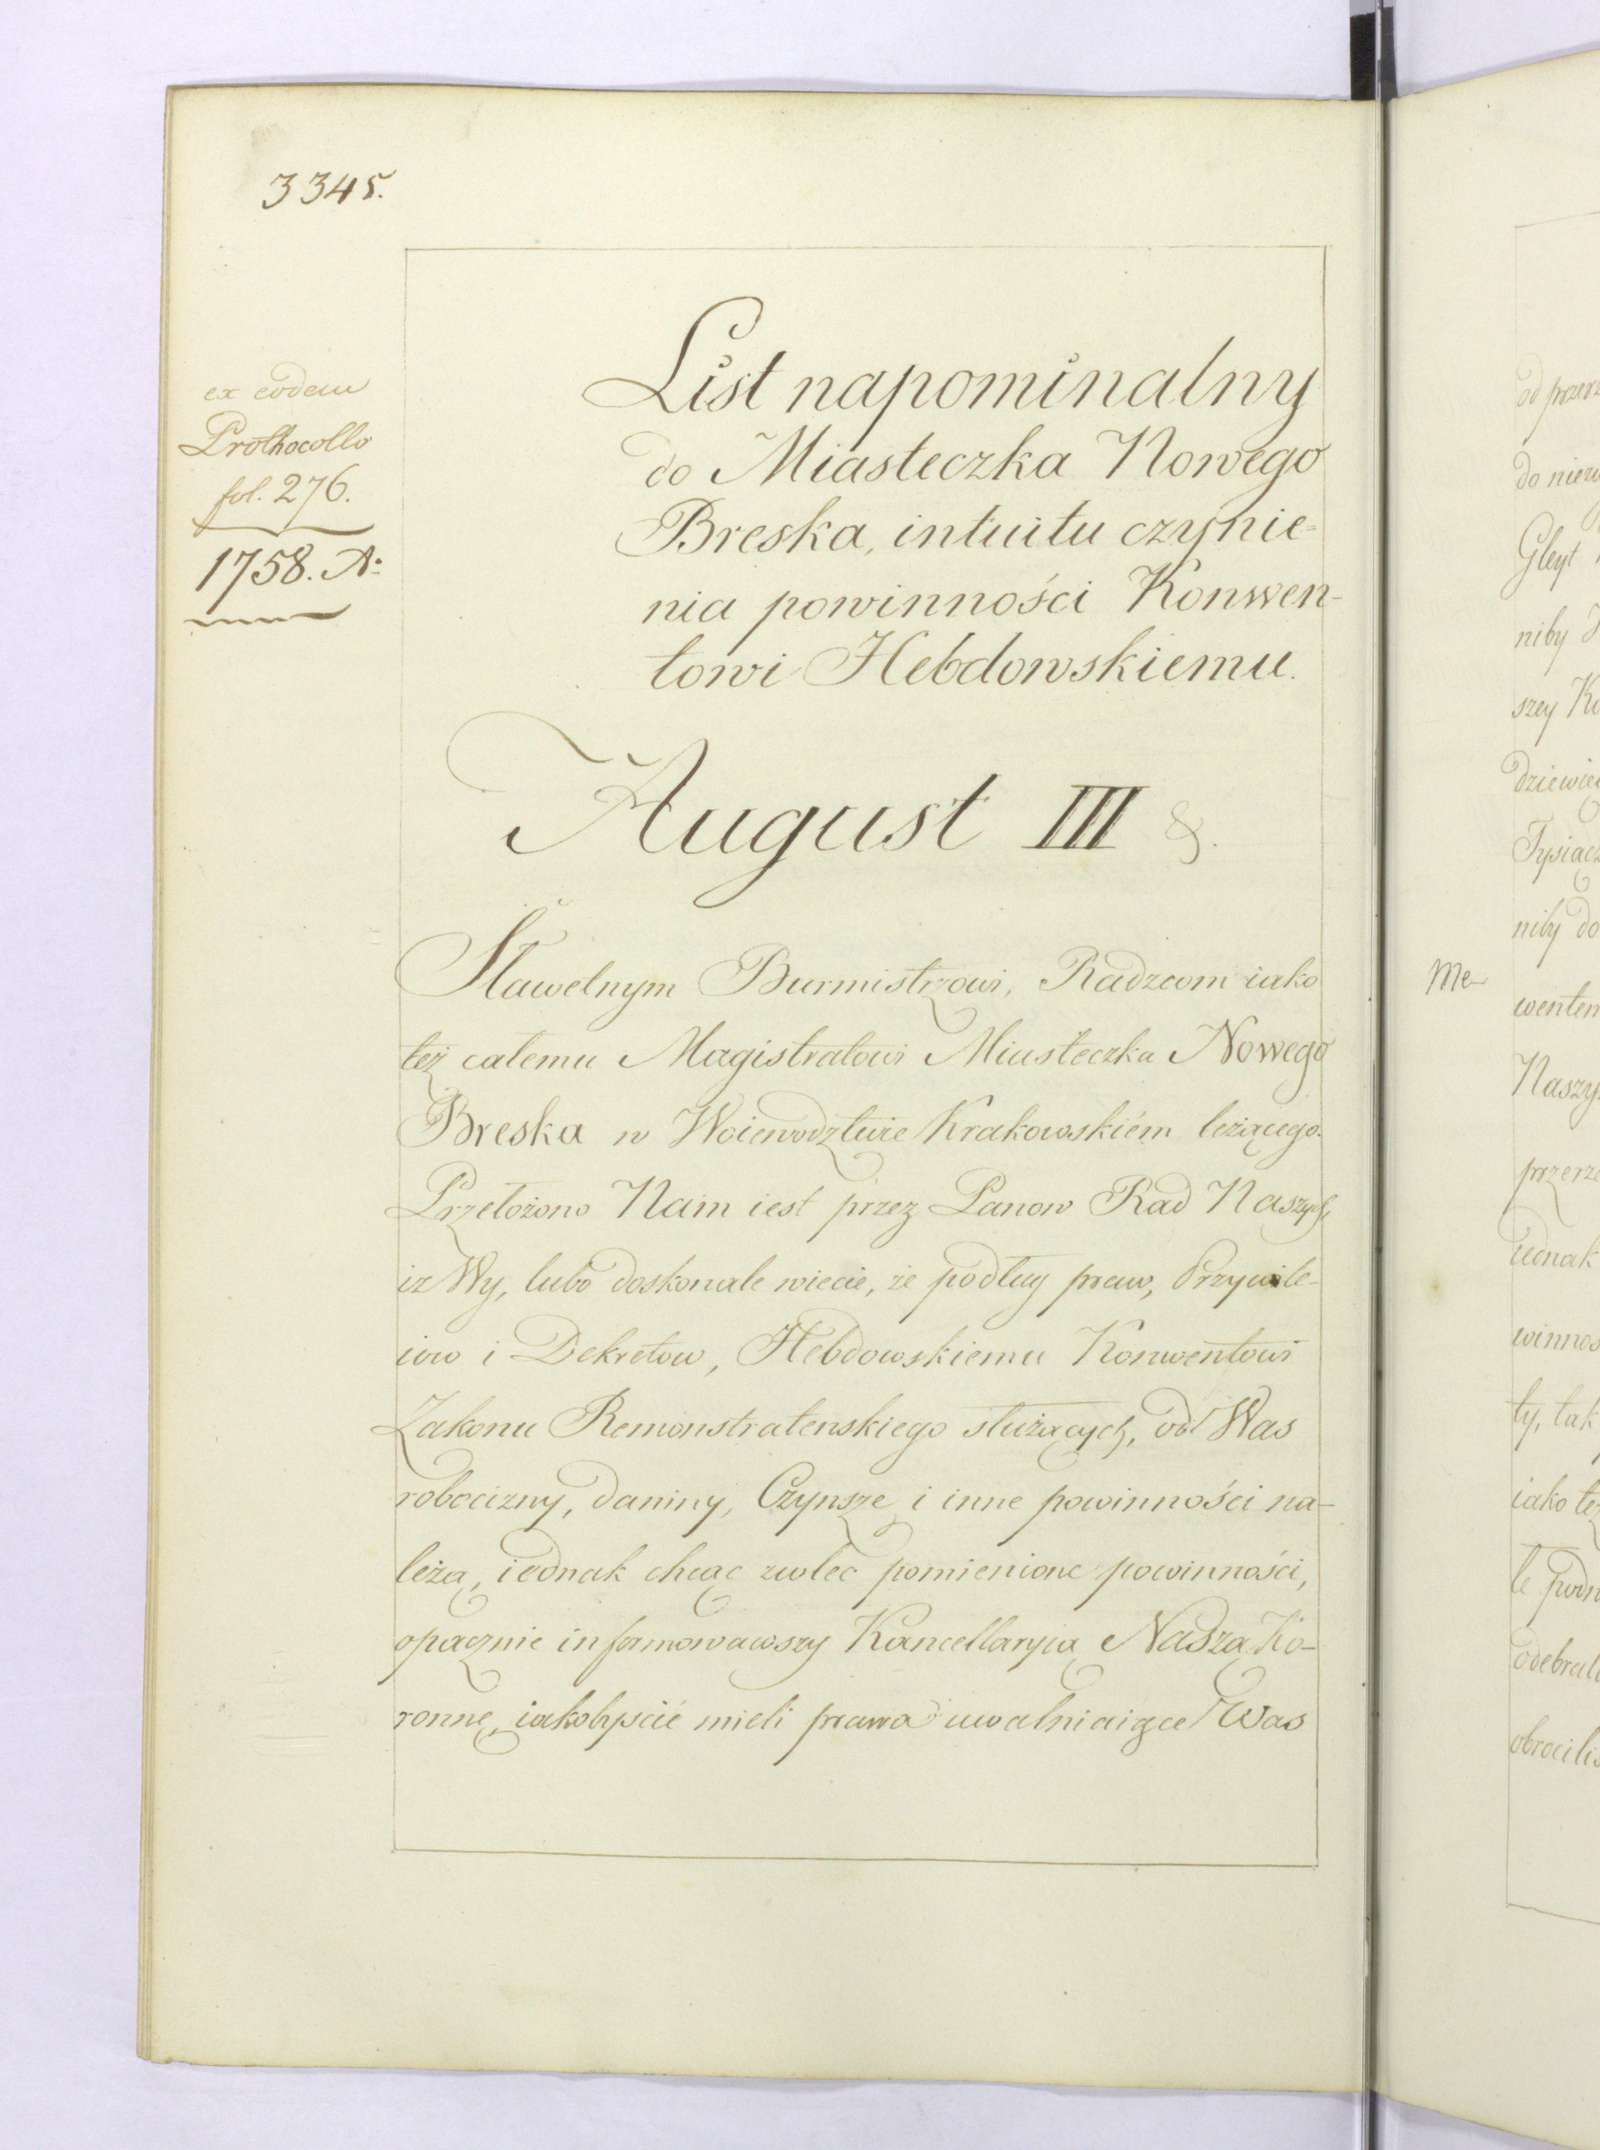 3345.
ex eodem
Prothocollo
fol. 276.
1758. A:
List napominalny
do Miasteczka Nowego
Breska, intuitu czynie=
nia powinności Konwen-
towi Hebdowskiemu.
August III &.
Sławetnym Burmistrzowi, Radzcom iako
też całemu Magistratowi Miasteczka Nowego
Breska w Woiewodztwie Krakowskiém leżącego.
Przełożono Nam iest przez Panow Rad Naszych,
iż Wy, lubo doskonale wiecie, że podług praw, Przywile-
iow i Dekretow, Hebdowskiemu Konwentowi
Zakonu Remonstratenskiego służących, od Was
robocizny, daniny, Czynsze i inne powinności na-
leżą, iednak chcąc zwlec pomienione powinności,
opacznie informowawszy Kancellaryią Naszą Ko-
ronną, iakobyście mieli prawa uwalniaiące Was
Me
od przerz
do niew
Gleyt
niby
szey Ko
dziewię
Tysiącz
niby do
wentem
Naszy
przerze
iednak
winnos
ty, tak
iako też
te podn
odebrali
obrocilis